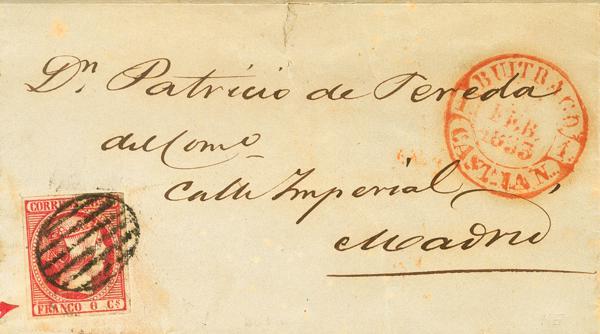 Dn. Patricio de Pereda
del Como
Calle Imperial,
Madrid
BUITRAGO
FEB.
1853
CAST. LA N.
CORREOS
FRANCO 6 Cs